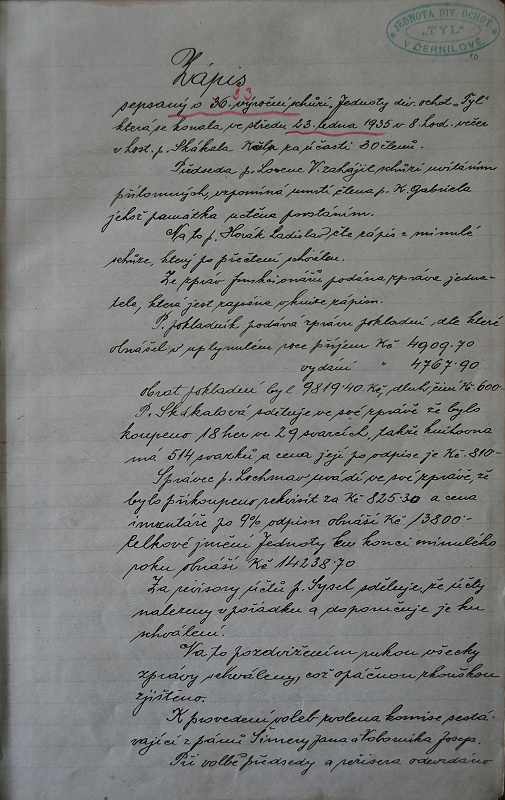 JEDNOTA DIV. OCHOT.
"TYL"
V ČERNILOVĚ
Zápis
33.
sepsaný o 30. výroční schůzi „Jednoty div. ochot „Tyl"
která se konala ve středu 23. ledna 1935 v 8. hod. večer
v host. p. Skákala za účasti 30 členů.
Předseda p. Lorenc V. zahájil schůzi uvítáním
přítomných, vzpomíná úmrtí člena p. K. Gabriela
jehož památka uctěna povstáním.
Na to p. Horák Ladislav čte zápis z minulé
schůze, který po přečtení schválen.
Ze zpráv funkcionářů podána zpráva jedna-
tele, která jest zapsána v knize zápisů.
P. pokladník podává zprávu pokladní, dle které
obnášel v uplynulém roce příjem Kč 4909.70
vydání " 4767.90
obrat pokladní byl 9819.40 Kč, dluh činí Kč 600-
P. Skákalová sděluje ve své zprávě že bylo
koupeno 18 her ve 29 svazcích, takže knihovna
má 514 svazků a cena její po odpise je Kč. 810-
Správce p. Lochman uvádí ve své zprávě, že
bylo přikoupeno rekvisit za Kč 825.30 a cena
inventáře po 9% odpisu obnáší Kč 13800-
Celkové jmění Jednoty ku konci minulého
roku obnáší Kč 14238.70
Za revisory účtů p. Sysel sděluje, že účty
nalezeny v pořádku a doporučuje je ku
schválení.
Na to pozdvižením rukou všecky
zprávy schváleny, což opáčnou zkouškou
zjištěno.
K provedení voleb zvolena komise sestá-
vající z pánů Šimery Jana a Vobornika Josefa.
Při volbě předsedy a režisera odevzdáno